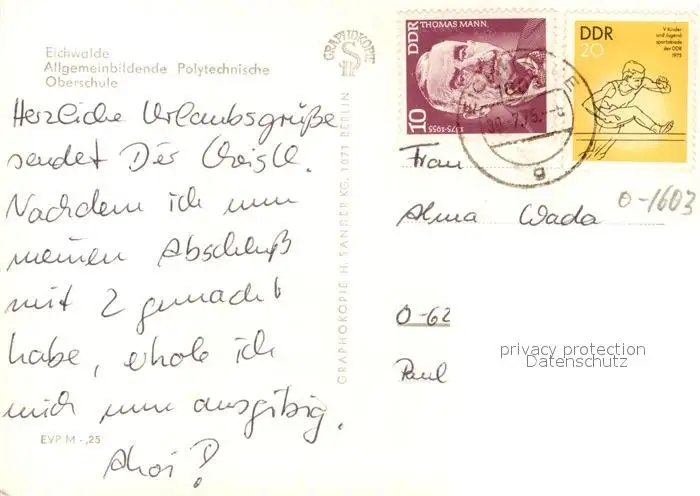 Eichwalde
Allgemeinbildende Polytechnische
Oberschule
Herzliche Urlaubsgrüße
sendet Dir
Nachdem ich nun
meinen Abschluß
mit 2 gemacht
habe, erhole ich
mich nun ausgibig.
Ahoi!
EVP M -,25
GRAPHOKOPIE
GRAPHOKOPIE H. SANDER KG, 1071 BERLIN
DDR THOMAS MANN
10
1875-1955
DDR
20
V. Kinder-
und Jugend-
spartakiade
der DDR
1975
1603
30.-7.75.
g
Frau
Alma Wada
O-1603
O-62
Paul
privacy protection
Datenschutz